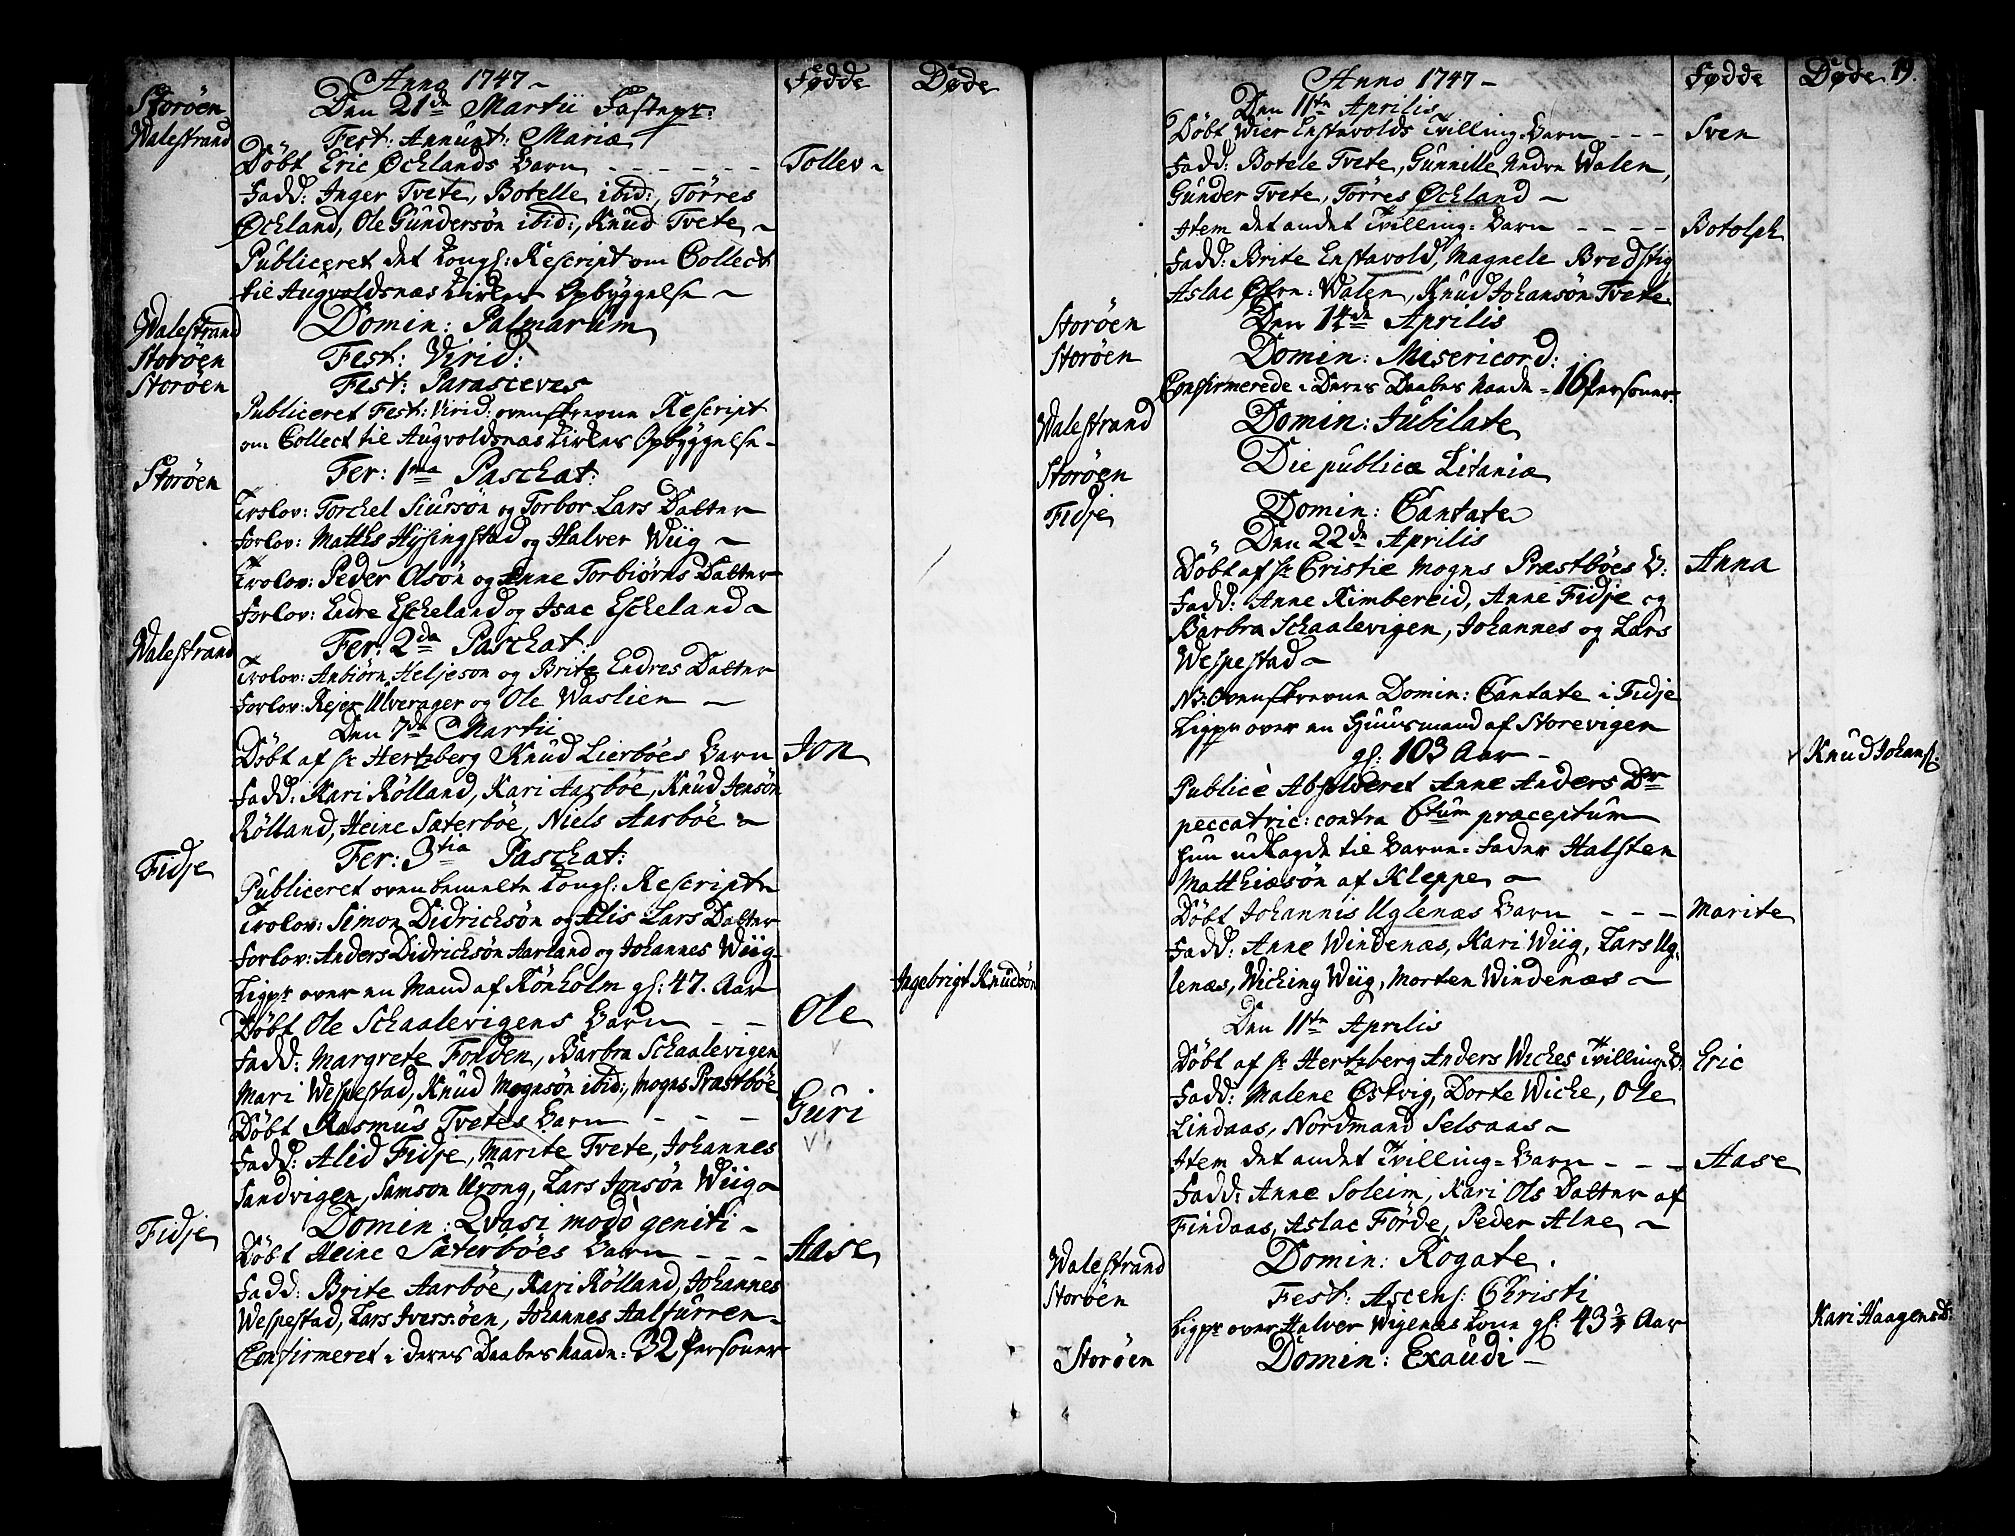 Anno 1747 Fødde Døde
Storöen Den 21de Martii Fastepr:
Walestrand Fest: Annunt: Mariæ
Döbt Eric Øchlands Barn - - - - - - Tollev
Fadd: Inger Tvete, Botelle ibid:, Törres
Øchland, Ole Gundersön ibid:, Knud Tvete
Publiceret det Kongl: Rescript om Collect
til Augvoldsnæs Kirkes Opbyggelse
Walestrand Domin: Palmarum
Storöen Fest: Virid:
Storöen Fest: Parasceves
Publiceret Fest: Virid: ovenskrevne Rescript
om Collect til Augvoldsnæs Kirkes Opbyggelse
Storöen Fer: 1ma Paschat:
Trolov: Torchel Siursön og Torbor Lars Datter
Forlov: Matthis Hysingstad og Halver Wiig
Trolov: Peder Olsön og Anne Torbiörns Datter
Forlov: Endre Escheland og Isac Escheland
Walestrand Fer: 2da Paschat:
Trolov: Anbiörn Heljeson og Brite Endres Datter
Forlov: Rejer Ulverager og Ole Waslien
Den 7de Martii
Döbt af Hr Hertzberg Knud Lierböes Barn Jon
Fadd: Kari Rölland, Kari Aarböe, Knud Jensön
Rölland, Heine Sæterböe, Niels Aarböe
Fidje Fer: 3tia Paschat:
Publiceret ovenbemelte Kongl: Rescript
Trolov: Simon Didricksön og Alis Lars Datter
Forlov: Anders Didricksön Aarland og Johannes Wiig
Ligpr over en Mand af Rönholm gl: 47. Aar Ingebrigt Knudsön
Döbt Ole Schaalevigens Barn - - Ole
Fadd: Margrete Forden, Barbra Schaalevigen
Mari Wespestad, Knud Mognsön ibid:, Mogns Præstböe
Döbt Rasmus Tvetes Barn - - - Guri
Fadd: Alid Fidje, Marite Tvete, Johannes
Sandvigen, Samson Urong, Lars Jonsön Wiig
Fidje Domin: Qvasi modo geniti
Döbt Heine Sæterböes Barn - - - Aase
Fadd: Brite Aarböe, Kari Rölland, Johannes
Wespestad, Lars Ivers:öen, Johannes Aalfurren
Confirmeret i deres Daabes Naade: 32 Personer
Anno 1747 Fødde Døde 19.
Den 11te Aprilis
Döbt Wier Enstavolds Tvilling-Barn - - - Sven
Fadd: Botele Tvete, Gunnille Nedre Walen,
Gunder Tvete, Törres Øchland
Item det andet Tvilling-Barn - - - - Botolph
Fadd: Brite Enstavold, Magnele Bredstig
Aslac Øfrn: Walen, Knud Johansön Tvete
Storöen Den 14de Aprilis
Storöen Domin: Misericord:
Confirmerede i Deres Daabes Naade - 16 Personer
Walestrand Domin: Jubilate
Storöen Die publicæ Litaniæ
Fidje Domin: Cantate
Den 22de Aprilis
Döbt af Hr Cristie Mogns Præstböes B: Anna
Fadd: Anne Kimbereid, Anne Fidje og
Barbra Schaalevigen, Johannes og Lars
Wespestad
NB: Ovenskrevne Domin: Cantate i Fidje
Ligpr over en Huusmand af Storevigen
gl: 103 Aar Knud Johansl:
Publicè Absolveret Anne Anders Dr
peccatric: contra 6tum præceptum
hun udlagde til Barne-Fader Halsten
Matthiæsön af Kleppe
Döbt Johannis Uglenæs Barn - - - Marite
Fadd: Anne Windenæs, Kari Wiig, Lars Ug-
lenæs, Wiching Wiig, Morten Windenæs
Den 11te Aprilis
Döbt af Hr Hertzberg Anders Wiches Tvilling-B: Eric
Fadd: Malene Østvig, Dorte Wiche, Ole
Lindaas, Nordmand Selsaas
Item det andet Tvilling-Barn - - - Aase
Fadd: Anne Soleim, Kari Ols Datter af
Findaas, Aslac Förde, Peder Alne
Walestrand Domin: Rogate
Storöen Fest: Ascens: Christi
Ligpr over Halver Wigenes Kone gl: 43 3/4 Aar Kari Haagensd:
Storöen Domin: Exaudi